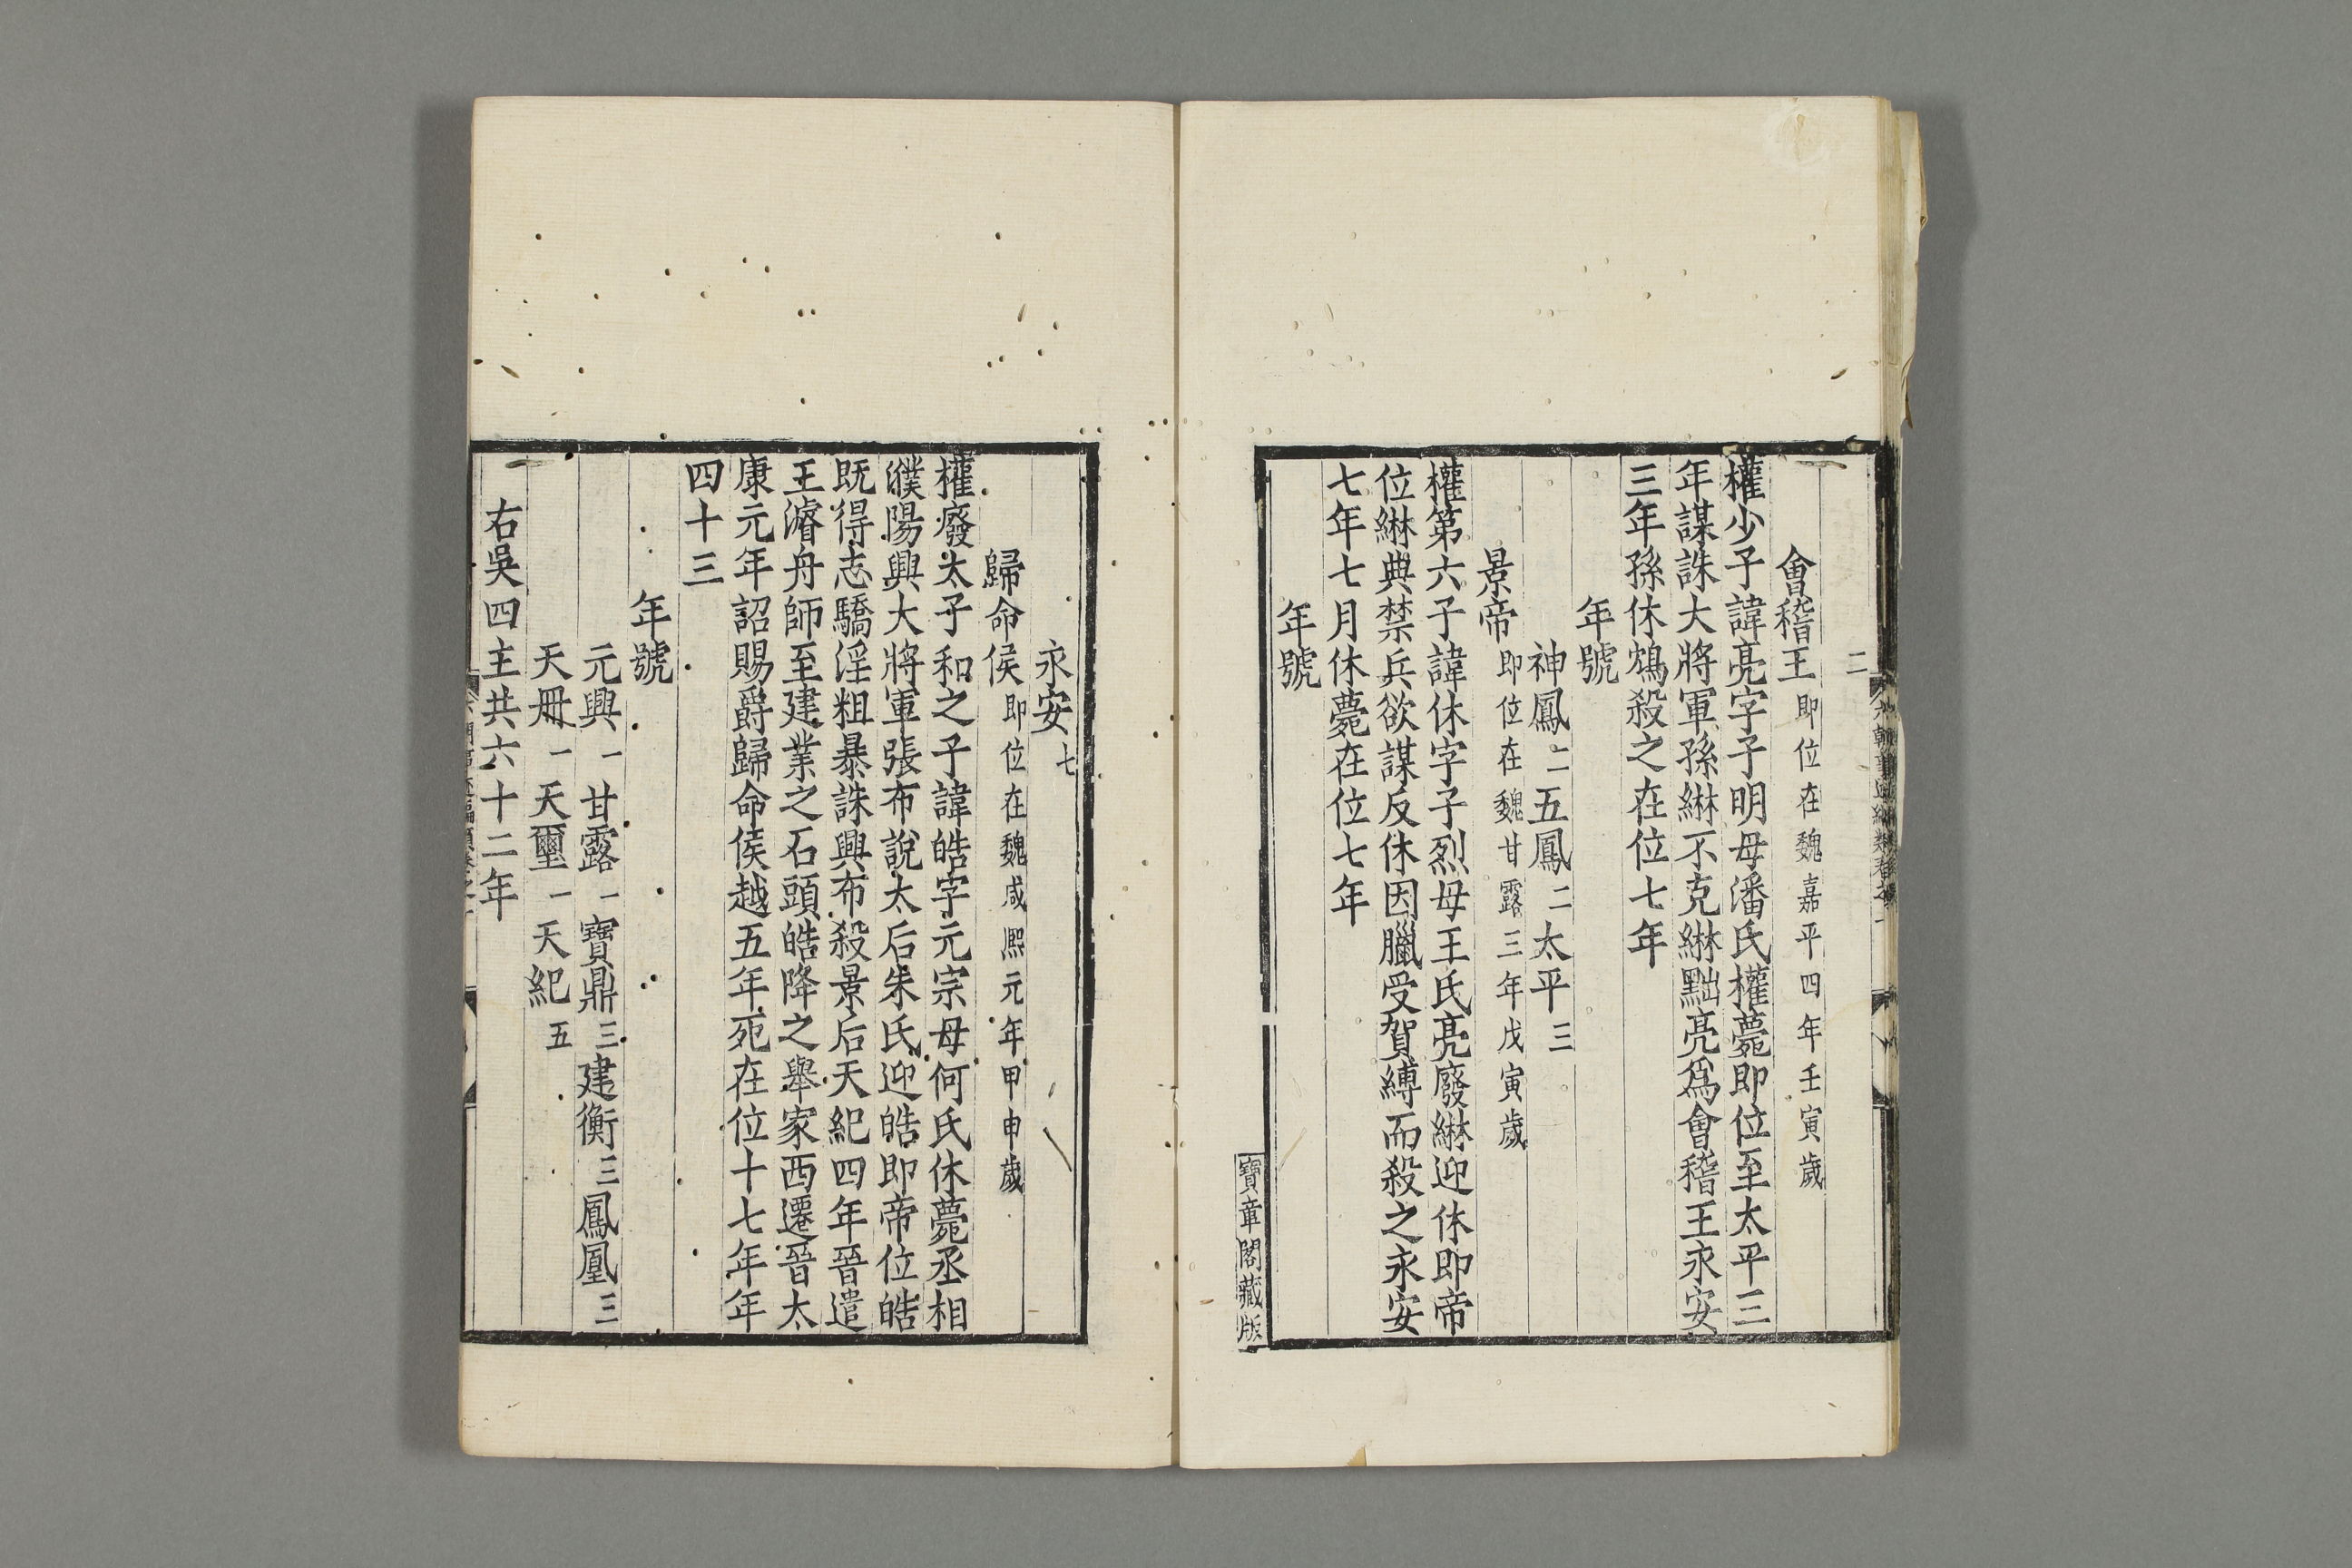 二
會稽王即位在魏嘉平四年壬寅歲
權少子諱亮字子明母潘氏權薨即位至太平三
年謀誅大將軍孫綝不克綝黜亮爲會稽王永安
三年孫休鴆殺之在位七年
年號
神鳳二五鳳二太平三
景帝即位在魏甘露三年戊寅歲
權第六子諱休字子烈母王氏亮廢綝迎休即帝
位綝典禁兵欲謀反休因臘受賀縛而殺之永安
七年七月休薨在位七年
年號
寶章閣藏版
永安七
歸命侯即位在魏咸熈元年甲申歲
權廢太子和之子諱皓字元宗母何氏休薨丞相
濮陽興大將軍張布說太后朱氏迎皓即帝位皓
既得志驕淫粗暴誅興布殺景后天紀四年晉遣
王濬舟師至建業之石頭皓降之舉家西遷晉太
康元年詔賜爵歸命侯越五年死在位十七年年
四十三
年號
元興一甘露一寶鼎三建衡三鳳凰三
天冊一天璽一天紀五
右吳四主共六十二年